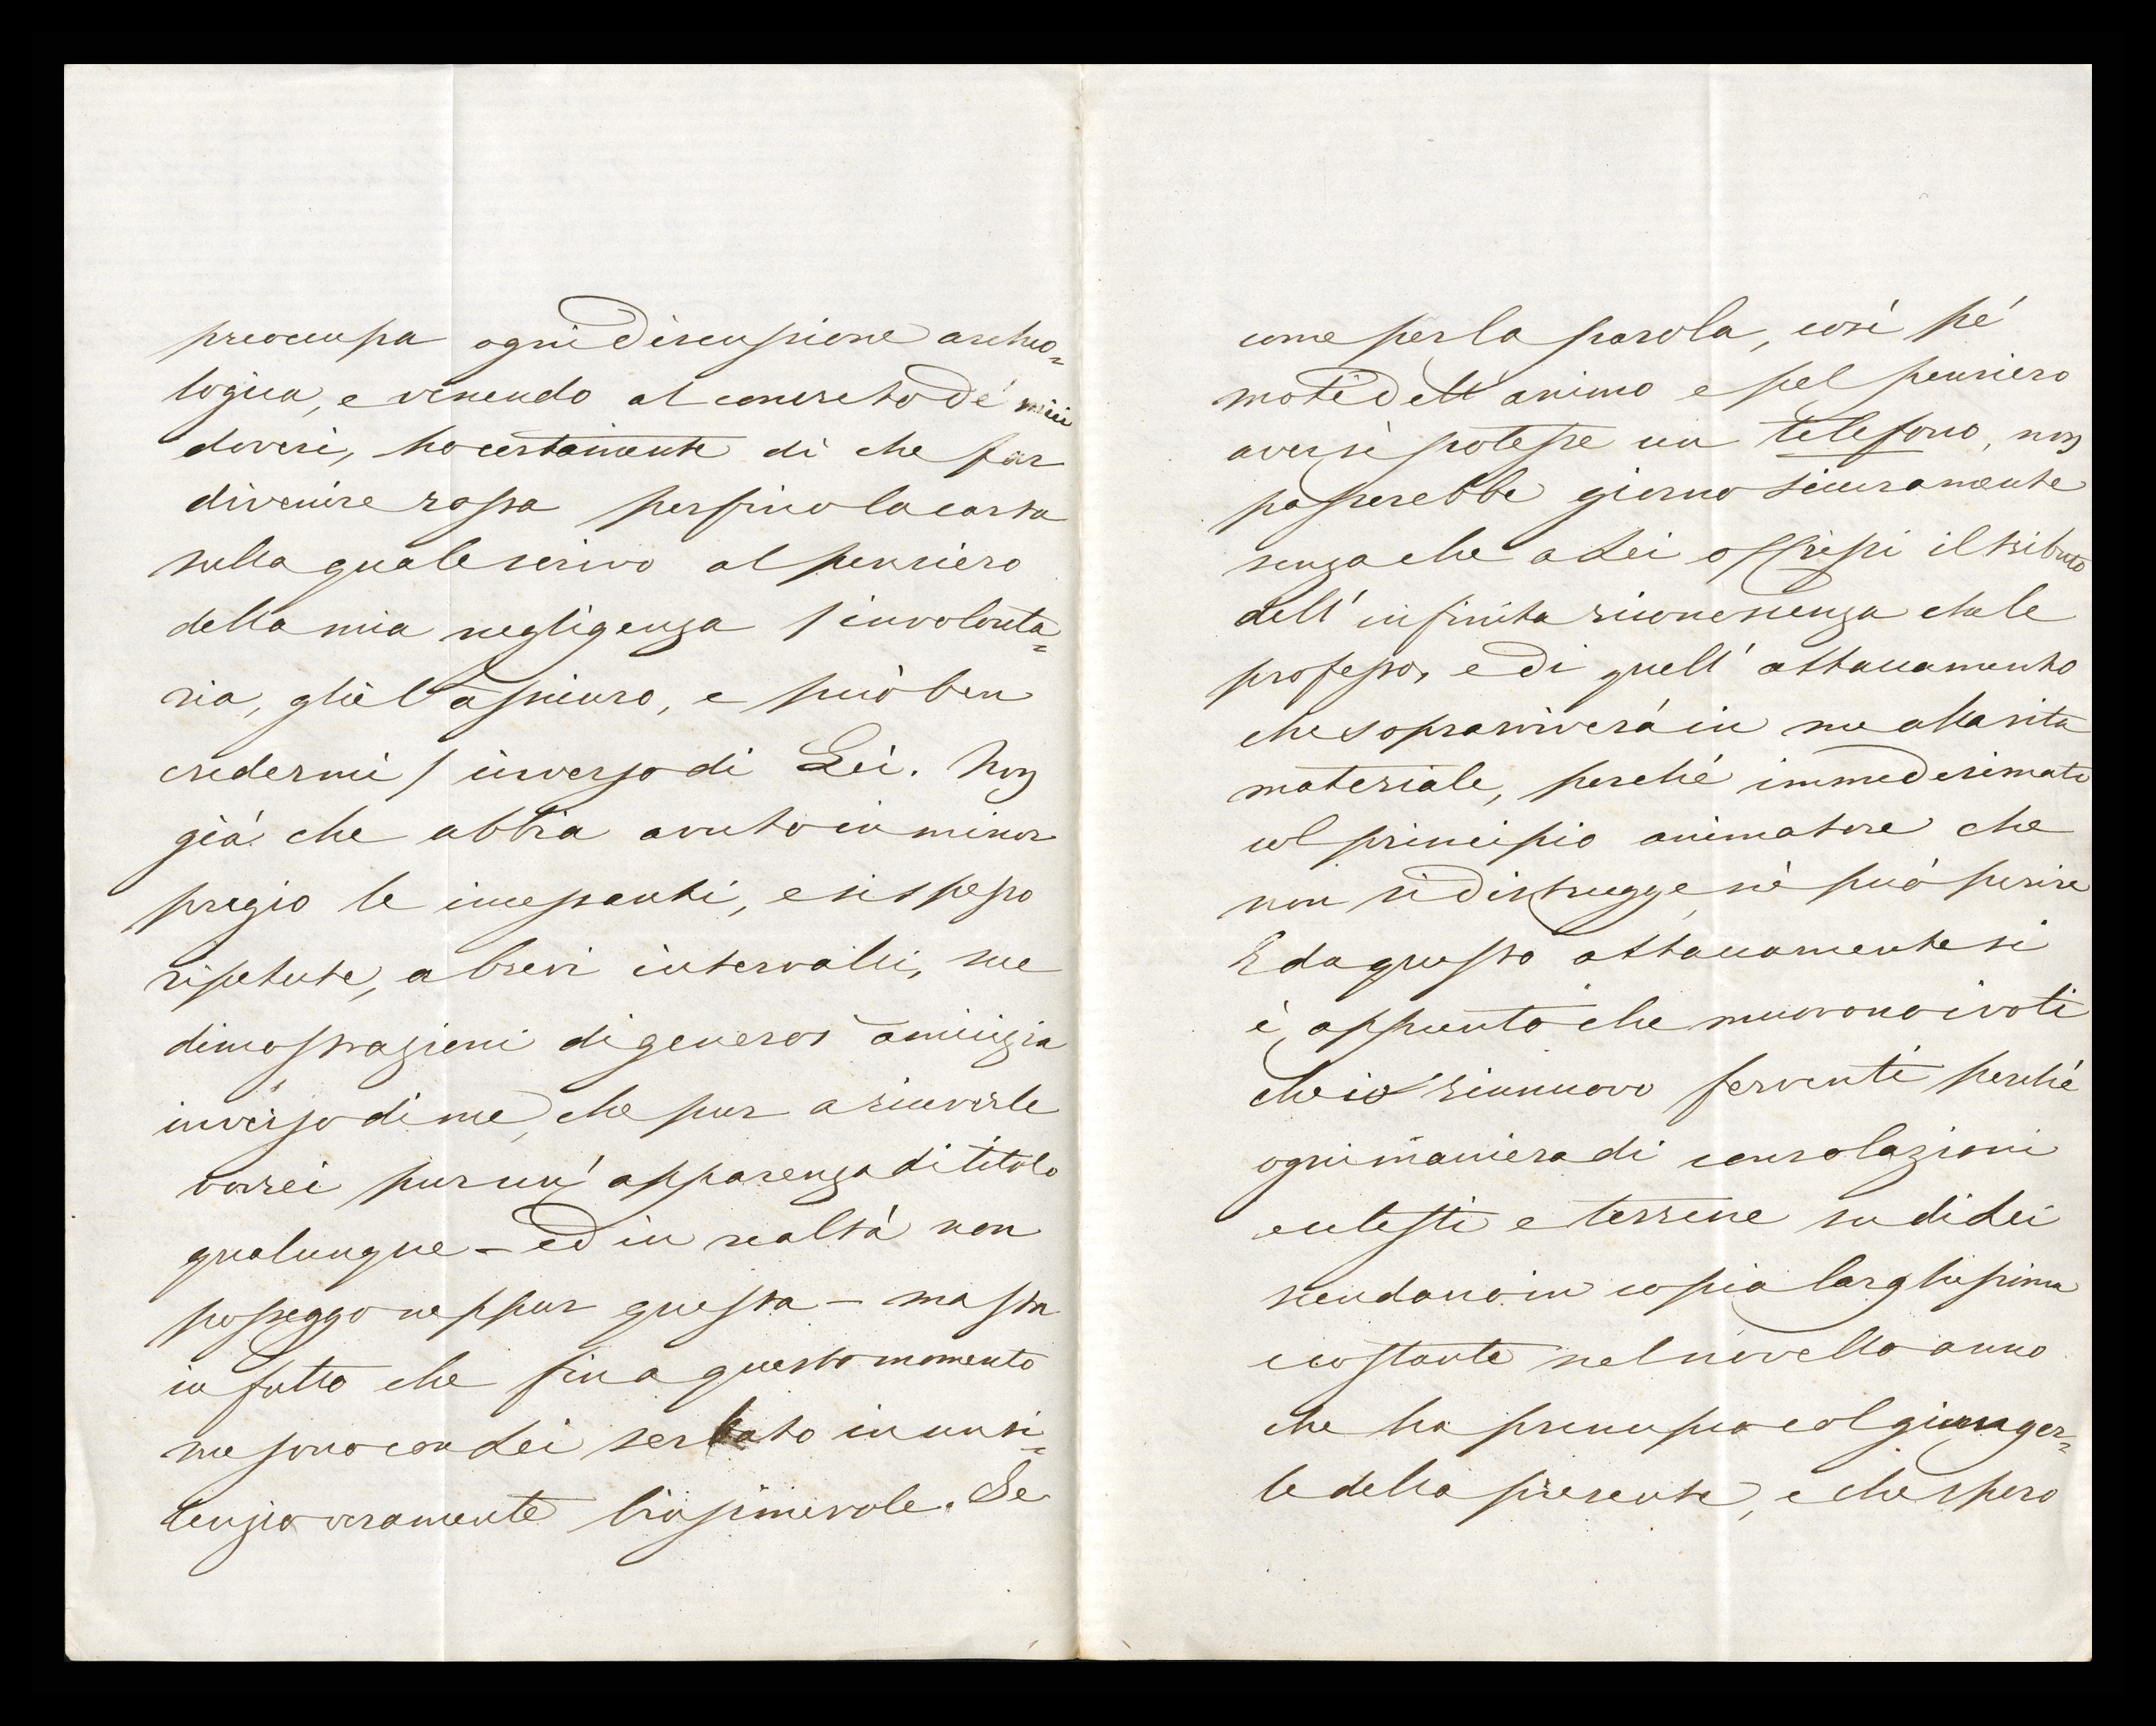 preoccupa ogni discussione archeo=
logica, e venendo al concreto de' miei
doveri, ho certamente di che far
divenire rossa perfino la carta
sulla quale scrivo al pensiero
della mia negligenza /involonta=
ria, gliel'assicuro, e può ben
credermi/ inverso di Lei. Non
già che abbia avuto in minor
pregio le incessanti, e sì spesso
ripetute, a brevi intervalli, sue
dimostrazioni di generos'amicizia
inverso di me, che pur a riceverle
vorrei pur un' apparenza di titolo
qualunque – ed in realtà non
posseggo neppur questa – ma sta
in fatto che fin a questo momento
me sono con Lei serbato in un si=
lenzio veramente biasimevole. Se
come per la parola, così pe'
moti dell'animo e pel pensiero
aversi potesse un telefono, non
passerebbe giorno sicuramente
senza che a Lei offrissi il tributo
dell' infinita riconoscenza che le
professo, e di quell' attaccamento
che sopravviverà in me alla vita
materiale, perché immedesimato
col principio animatore che
non si distrugge, nè può perire
E da questo attaccamento si
è, appunto che muovono i voti
che io rinnuovo ferventi perché
ogni maniera di consolazioni
celesti e terrene su di Lei
scendano in copia larghissima
e costante nel novello anno
che ha principio col giunger=
le della presente, e che spero